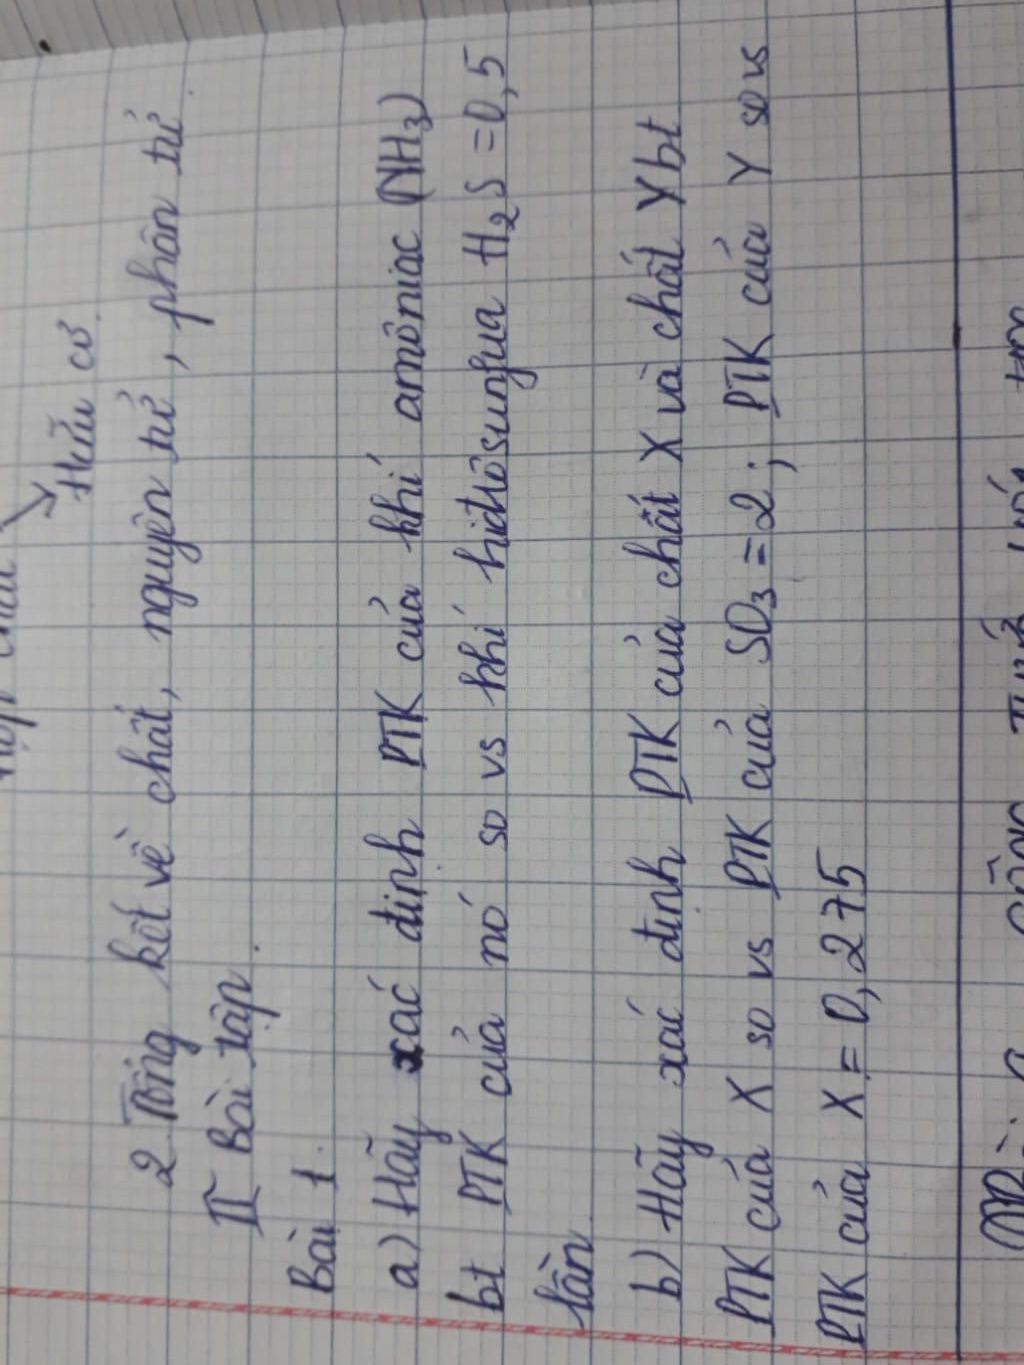 Hữu cơ
2 Tổng kết về chất, nguyên tử, phân tử.
II Bài tập.
Bài 1.
a) Hãy xác định PTK của khí amôniac (NH3)
bt PTK của nó so vs khí hiđrôsunfua H2S = 0,5
lần.
b) Hãy xác định PTK của chất X và chất Y bt
PTK của X so vs PTK của SO3 = 2; PTK của Y so vs
PTK của X = 0,275